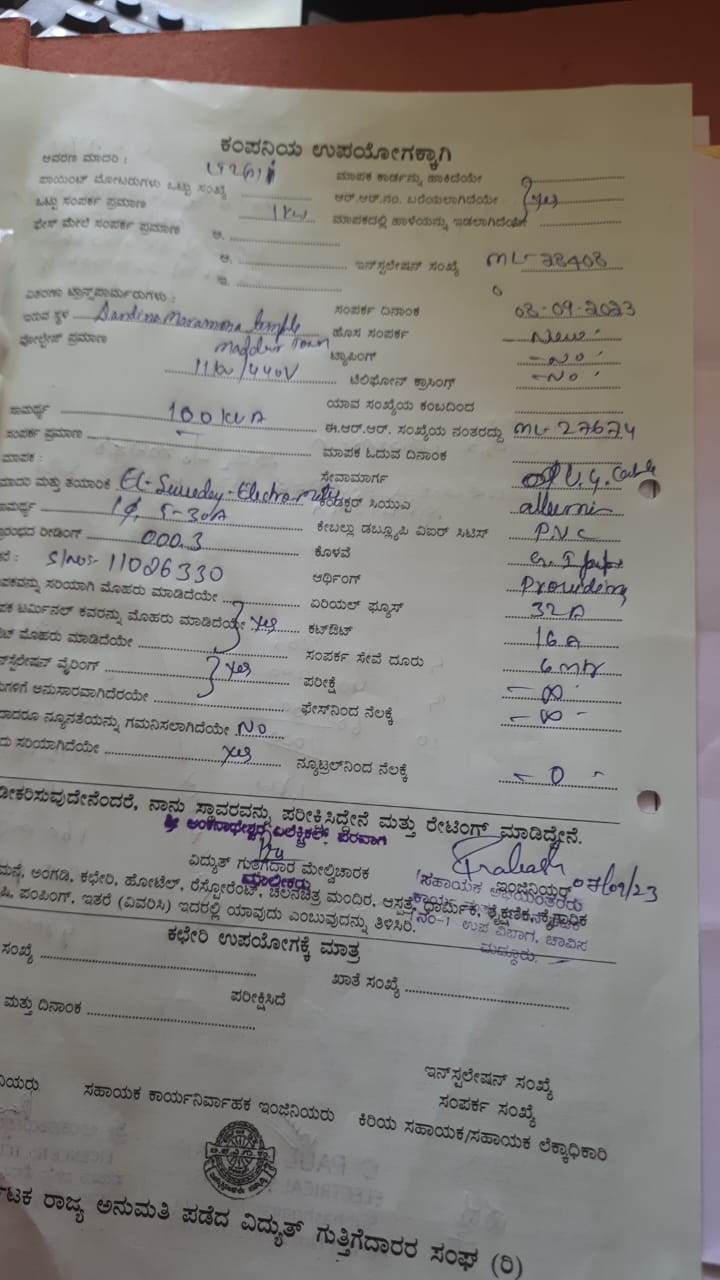 ಕಂಪನಿಯ ಉಪಯೋಗಕ್ಕಾಗಿ
ಆವರಣ ಮಾದರಿ : ಮಾಪಕ ಕಾರ್ಡನ್ನು ಹಾಕಿದೆಯೇ
ಪಾಯಿಂಟ್ ಮೋಟರುಗಳು ಒಟ್ಟು ಸಂಖ್ಯೆ ಆರ್.ಆರ್.ನಂ. ಬರೆಯಲಾಗಿದೆಯೇ yes
ಒಟ್ಟು ಸಂಪರ್ಕ ಪ್ರಮಾಣ 1 kw ಮಾಪಕದಲ್ಲಿ ಹಾಳೆಯನ್ನು ಇಡಲಾಗಿದೆಯೇ
ಫೇಸ್ ಮೇಲೆ ಸಂಪರ್ಕ ಪ್ರಮಾಣ ಅ.
ಆ. ಇನ್‌ಸ್ಟಲೇಷನ್ ಸಂಖ್ಯೆ ML-28408
ಇ.
ಟ್ರಾನ್ಸ್‌ಫಾರ್ಮರುಗಳು : ಸಂಪರ್ಕ ದಿನಾಂಕ 08-09-2023
ಇರುವ ಸ್ಥಳ Dandina Maramma temple ಹೊಸ ಸಂಪರ್ಕ New
Maddur Town
ವೋಲ್ಟೇಜ್ ಪ್ರಮಾಣ 11kv/440V ಟ್ಯಾಪಿಂಗ್ - NO -
ಟೆಲಿಫೋನ್ ಕ್ರಾಸಿಂಗ್ - NO -
ಸಾಮರ್ಥ್ಯ 100 kVA ಯಾವ ಸಂಖ್ಯೆಯ ಕಂಬದಿಂದ
ಸಂಪರ್ಕ ಪ್ರಮಾಣ - ಈ.ಆರ್.ಆರ್. ಸಂಖ್ಯೆಯ ನಂತರದ್ದು ML-27674
ಮಾಪಕ : ಮಾಪಕ ಓದುವ ದಿನಾಂಕ
ಮಾದರಿ ಮತ್ತು ತಯಾರಿಕೆ ಸೇವಾಮಾರ್ಗ U.G. Cable
ಸಾಮರ್ಥ್ಯ 1φ, 5-30A ಕಂಡಕ್ಟರ್ ಸಿಯುಎ
ರೀಡಿಂಗ್ 000.3 ಕೇಬಲ್ಲು ಡಬ್ಲ್ಯೂಪಿ ವಿಐಆರ್ ಸಿಟಿಸ್ P.V.C
S/No:- 11086330 ಕೊಳವೆ G. I pipe
ಸರಿಯಾಗಿ ಮೊಹರು ಮಾಡಿದೆಯೇ ಆರ್ಥಿಂಗ್ Providing
ಟರ್ಮಿನಲ್ ಕವರನ್ನು ಮೊಹರು ಮಾಡಿದೆಯೇ yes ಏರಿಯಲ್ ಫ್ಯೂಸ್ 32A
ಮೊಹರು ಮಾಡಿದೆಯೇ ಕಟ್‌ಔಟ್ 16 A
ವೈರಿಂಗ್ yes ಸಂಪರ್ಕ ಸೇವೆ ದೂರು 6 mtr
ಅನುಸಾರವಾಗಿದೆಯೇ ಪರೀಕ್ಷೆ - ∞ -
ನ್ಯೂನತೆಯನ್ನು ಗಮನಿಸಲಾಗಿದೆಯೇ NO ಫೇಸ್‌ನಿಂದ ನೆಲಕ್ಕೆ - ∞ -
ಸರಿಯಾಗಿದೆಯೇ yes ನ್ಯೂಟ್ರಲ್‌ನಿಂದ ನೆಲಕ್ಕೆ - 0 -
ನಾನು ಸ್ಥಾವರವನ್ನು ಪರೀಕ್ಷಿಸಿದ್ದೇನೆ ಮತ್ತು ರೇಟಿಂಗ್ ಮಾಡಿದ್ದೇನೆ.
ಎಲೆಕ್ಟ್ರಿಕಲ್ಸ್ ಪರವಾಗಿ
Prakash 08/09/23
ವಿದ್ಯುತ್ ಗುತ್ತಿಗೆದಾರ ಮೇಲ್ವಿಚಾರಕ ಇಂಜಿನಿಯರ್
ಮಾಲೀಕರು
ಮನೆ, ಅಂಗಡಿ, ಕಛೇರಿ, ಹೋಟೆಲ್, ರೆಸ್ಟೋರೆಂಟ್, ಚಲನಚಿತ್ರ ಮಂದಿರ, ಆಸ್ಪತ್ರೆ, ಧಾರ್ಮಿಕ, ಶೈಕ್ಷಣಿಕ, ಕೈಗಾರಿಕ
ಪಂಪಿಂಗ್, ಇತರೆ (ವಿವರಿಸಿ) ಇದರಲ್ಲಿ ಯಾವುದು ಎಂಬುವುದನ್ನು ತಿಳಿಸಿರಿ.
ನಂ-1 ಉಪ ವಿಭಾಗ, ಚಾವಿಸ
ಮದ್ದೂರು.
ಕಛೇರಿ ಉಪಯೋಗಕ್ಕೆ ಮಾತ್ರ
ಸಂಖ್ಯೆ ಖಾತೆ ಸಂಖ್ಯೆ
ಪರೀಕ್ಷಿಸಿದೆ
ಮತ್ತು ದಿನಾಂಕ
ಇನ್‌ಸ್ಟಲೇಷನ್ ಸಂಖ್ಯೆ
ಸಂಪರ್ಕ ಸಂಖ್ಯೆ
ಸಹಾಯಕ ಕಾರ್ಯನಿರ್ವಾಹಕ ಇಂಜಿನಿಯರು ಕಿರಿಯ ಸಹಾಯಕ/ಸಹಾಯಕ ಲೆಕ್ಕಾಧಿಕಾರಿ
ರಾಜ್ಯ ಅನುಮತಿ ಪಡೆದ ವಿದ್ಯುತ್ ಗುತ್ತಿಗೆದಾರರ ಸಂಘ (ರಿ)